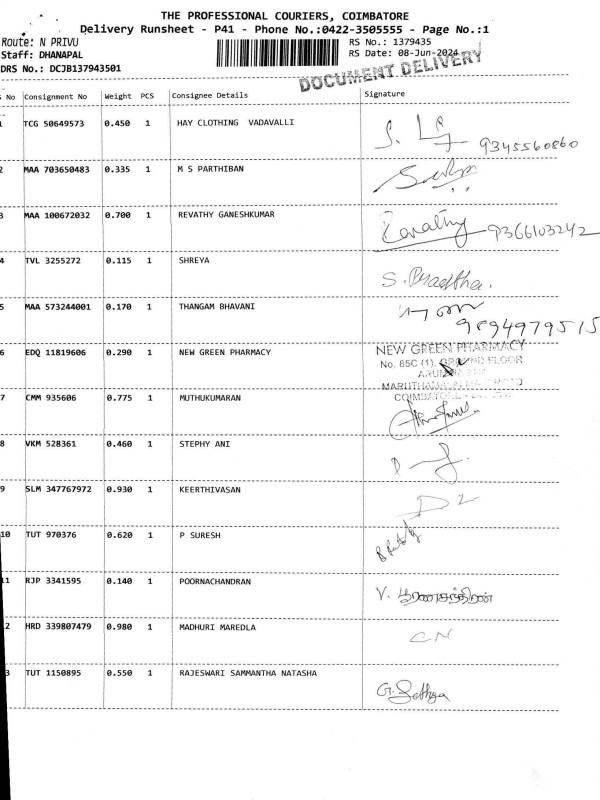 THE PROFESSIONAL COURIERS, COIMBATORE
Delivery Runsheet - P41 - Phone No.:0422-3505555 - Page No.:1
Route: N PRIVU
RS No.: 1379435
Staff: DHANAPAL
RS Date: 08-Jun-2024
DRS No.: DCJB137943501
DOCUMENT DELIVERY
No Consignment No Weight PCS Consignee Details Signature
1 TCG 50649573 0.450 1 HAY CLOTHING VADAVALLI
9345560860
2 MAA 703650483 0.335 1 M S PARTHIBAN
3 MAA 100672032 0.700 1 REVATHY GANESHKUMAR
9366103242
4 TVL 3255272 0.115 1 SHREYA
5 MAA 573244001 0.170 1 THANGAM BHAVANI
9894979515
6 EDQ 11819606 0.290 1 NEW GREEN PHARMACY
NEW GREEN PHARMACY
No. 85C (1), GROUND FLOOR
7 CMM 935606 0.775 1 MUTHUKUMARAN
8 VKM 528361 0.460 1 STEPHY ANI
9 SLM 347767972 0.930 1 KEERTHIVASAN
10 TUT 970376 0.620 1 P SURESH
11 RJP 3341595 0.140 1 POORNACHANDRAN
V. பூரணசந்திரன்
2 HRD 339807479 0.980 1 MADHURI MAREDLA
CN
3 TUT 1150895 0.550 1 RAJESWARI SAMMANTHA NATASHA
G. Sathya